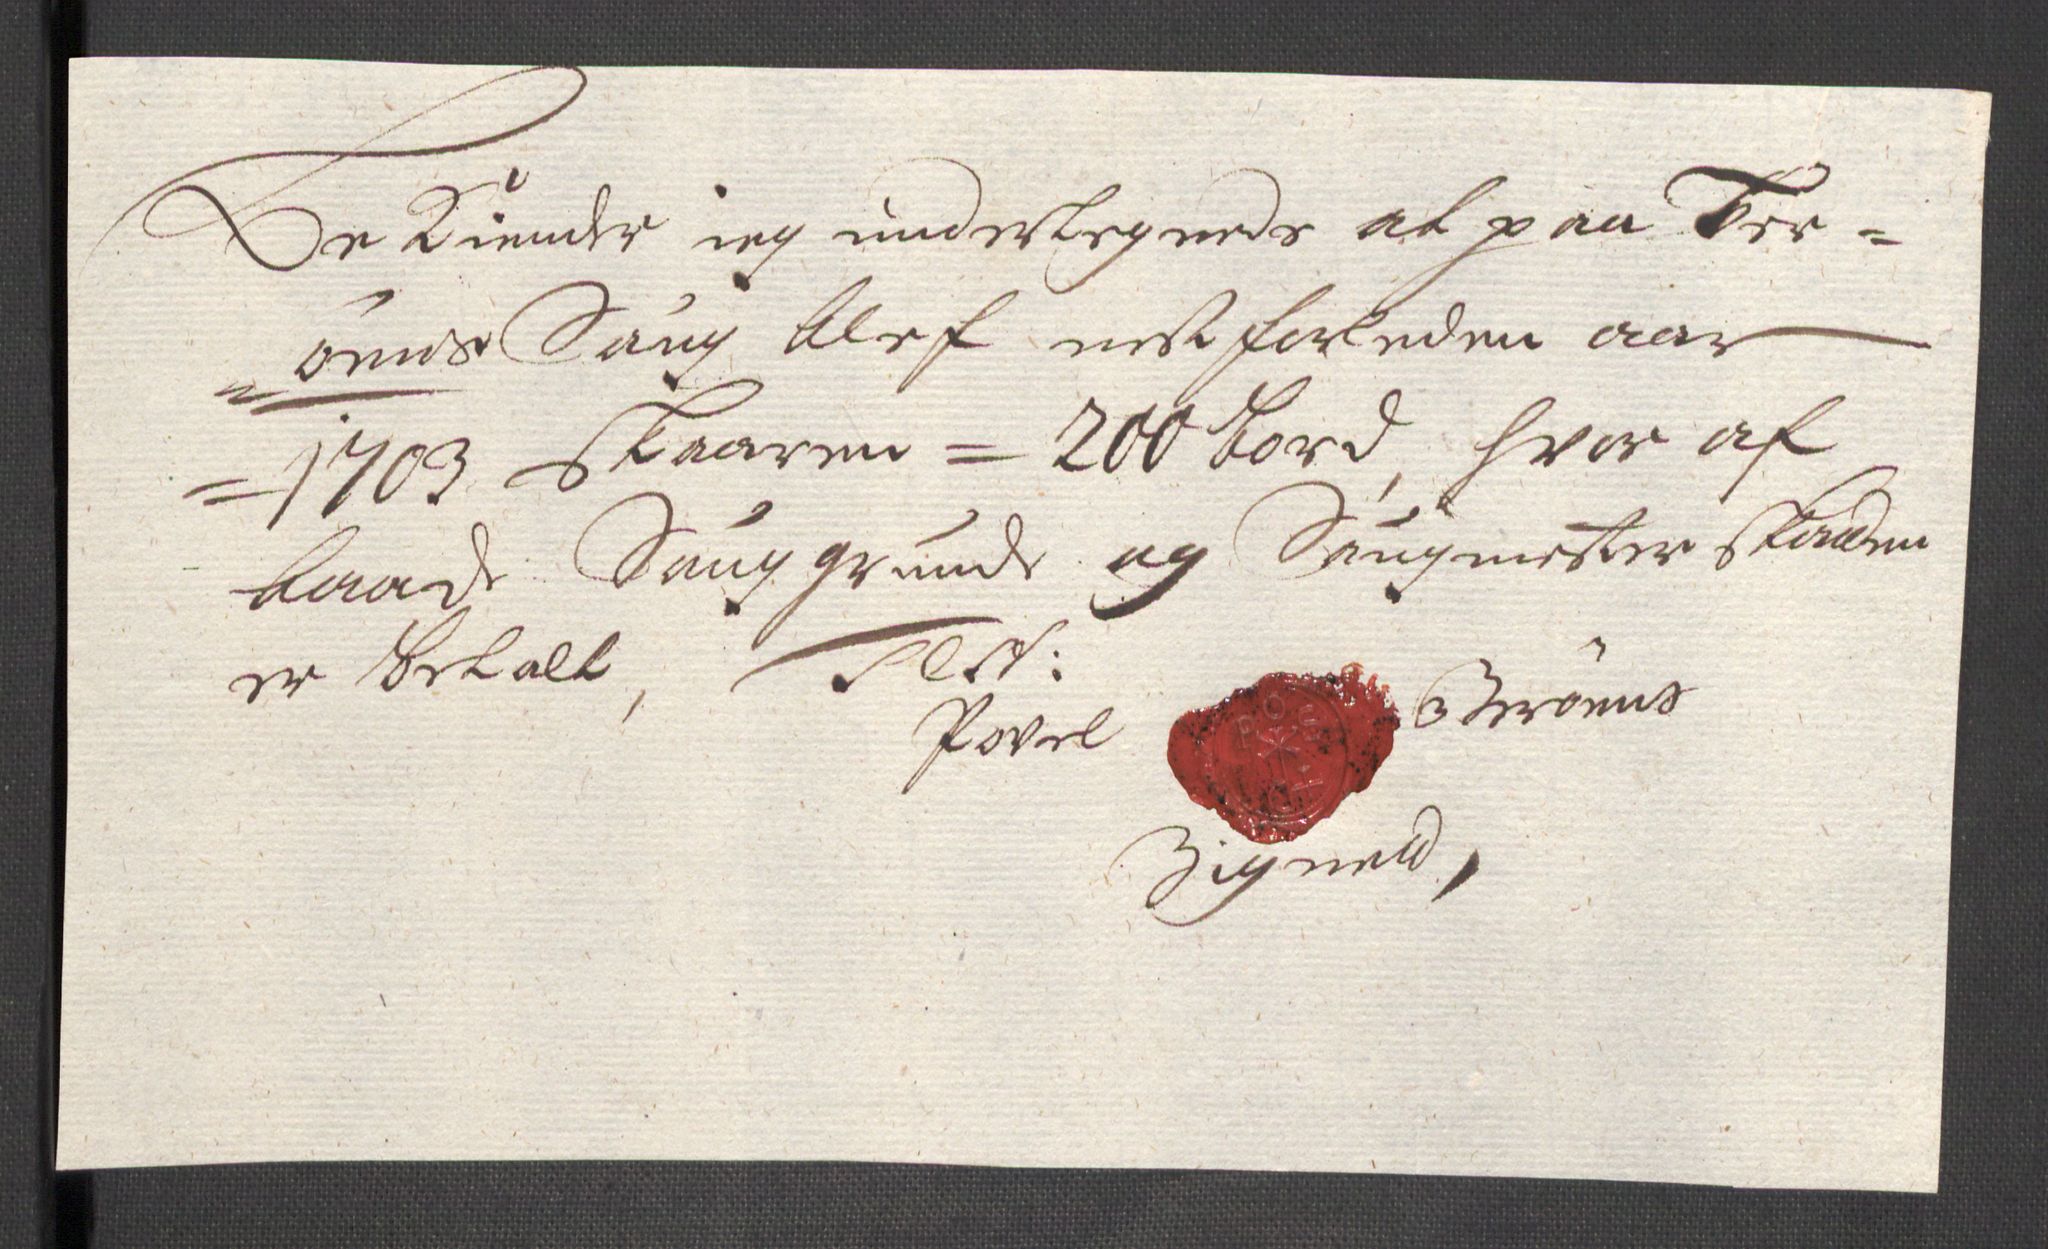 Be Kiender ieg undertegnede at paa Ter=
=öens Saug blef nestforleden aar
=1703 skaaren = 200 bord, hvor af
baade Saug grunde og Saugmester skaden
er betalt, Test:
Povel Teröens
Zigned,